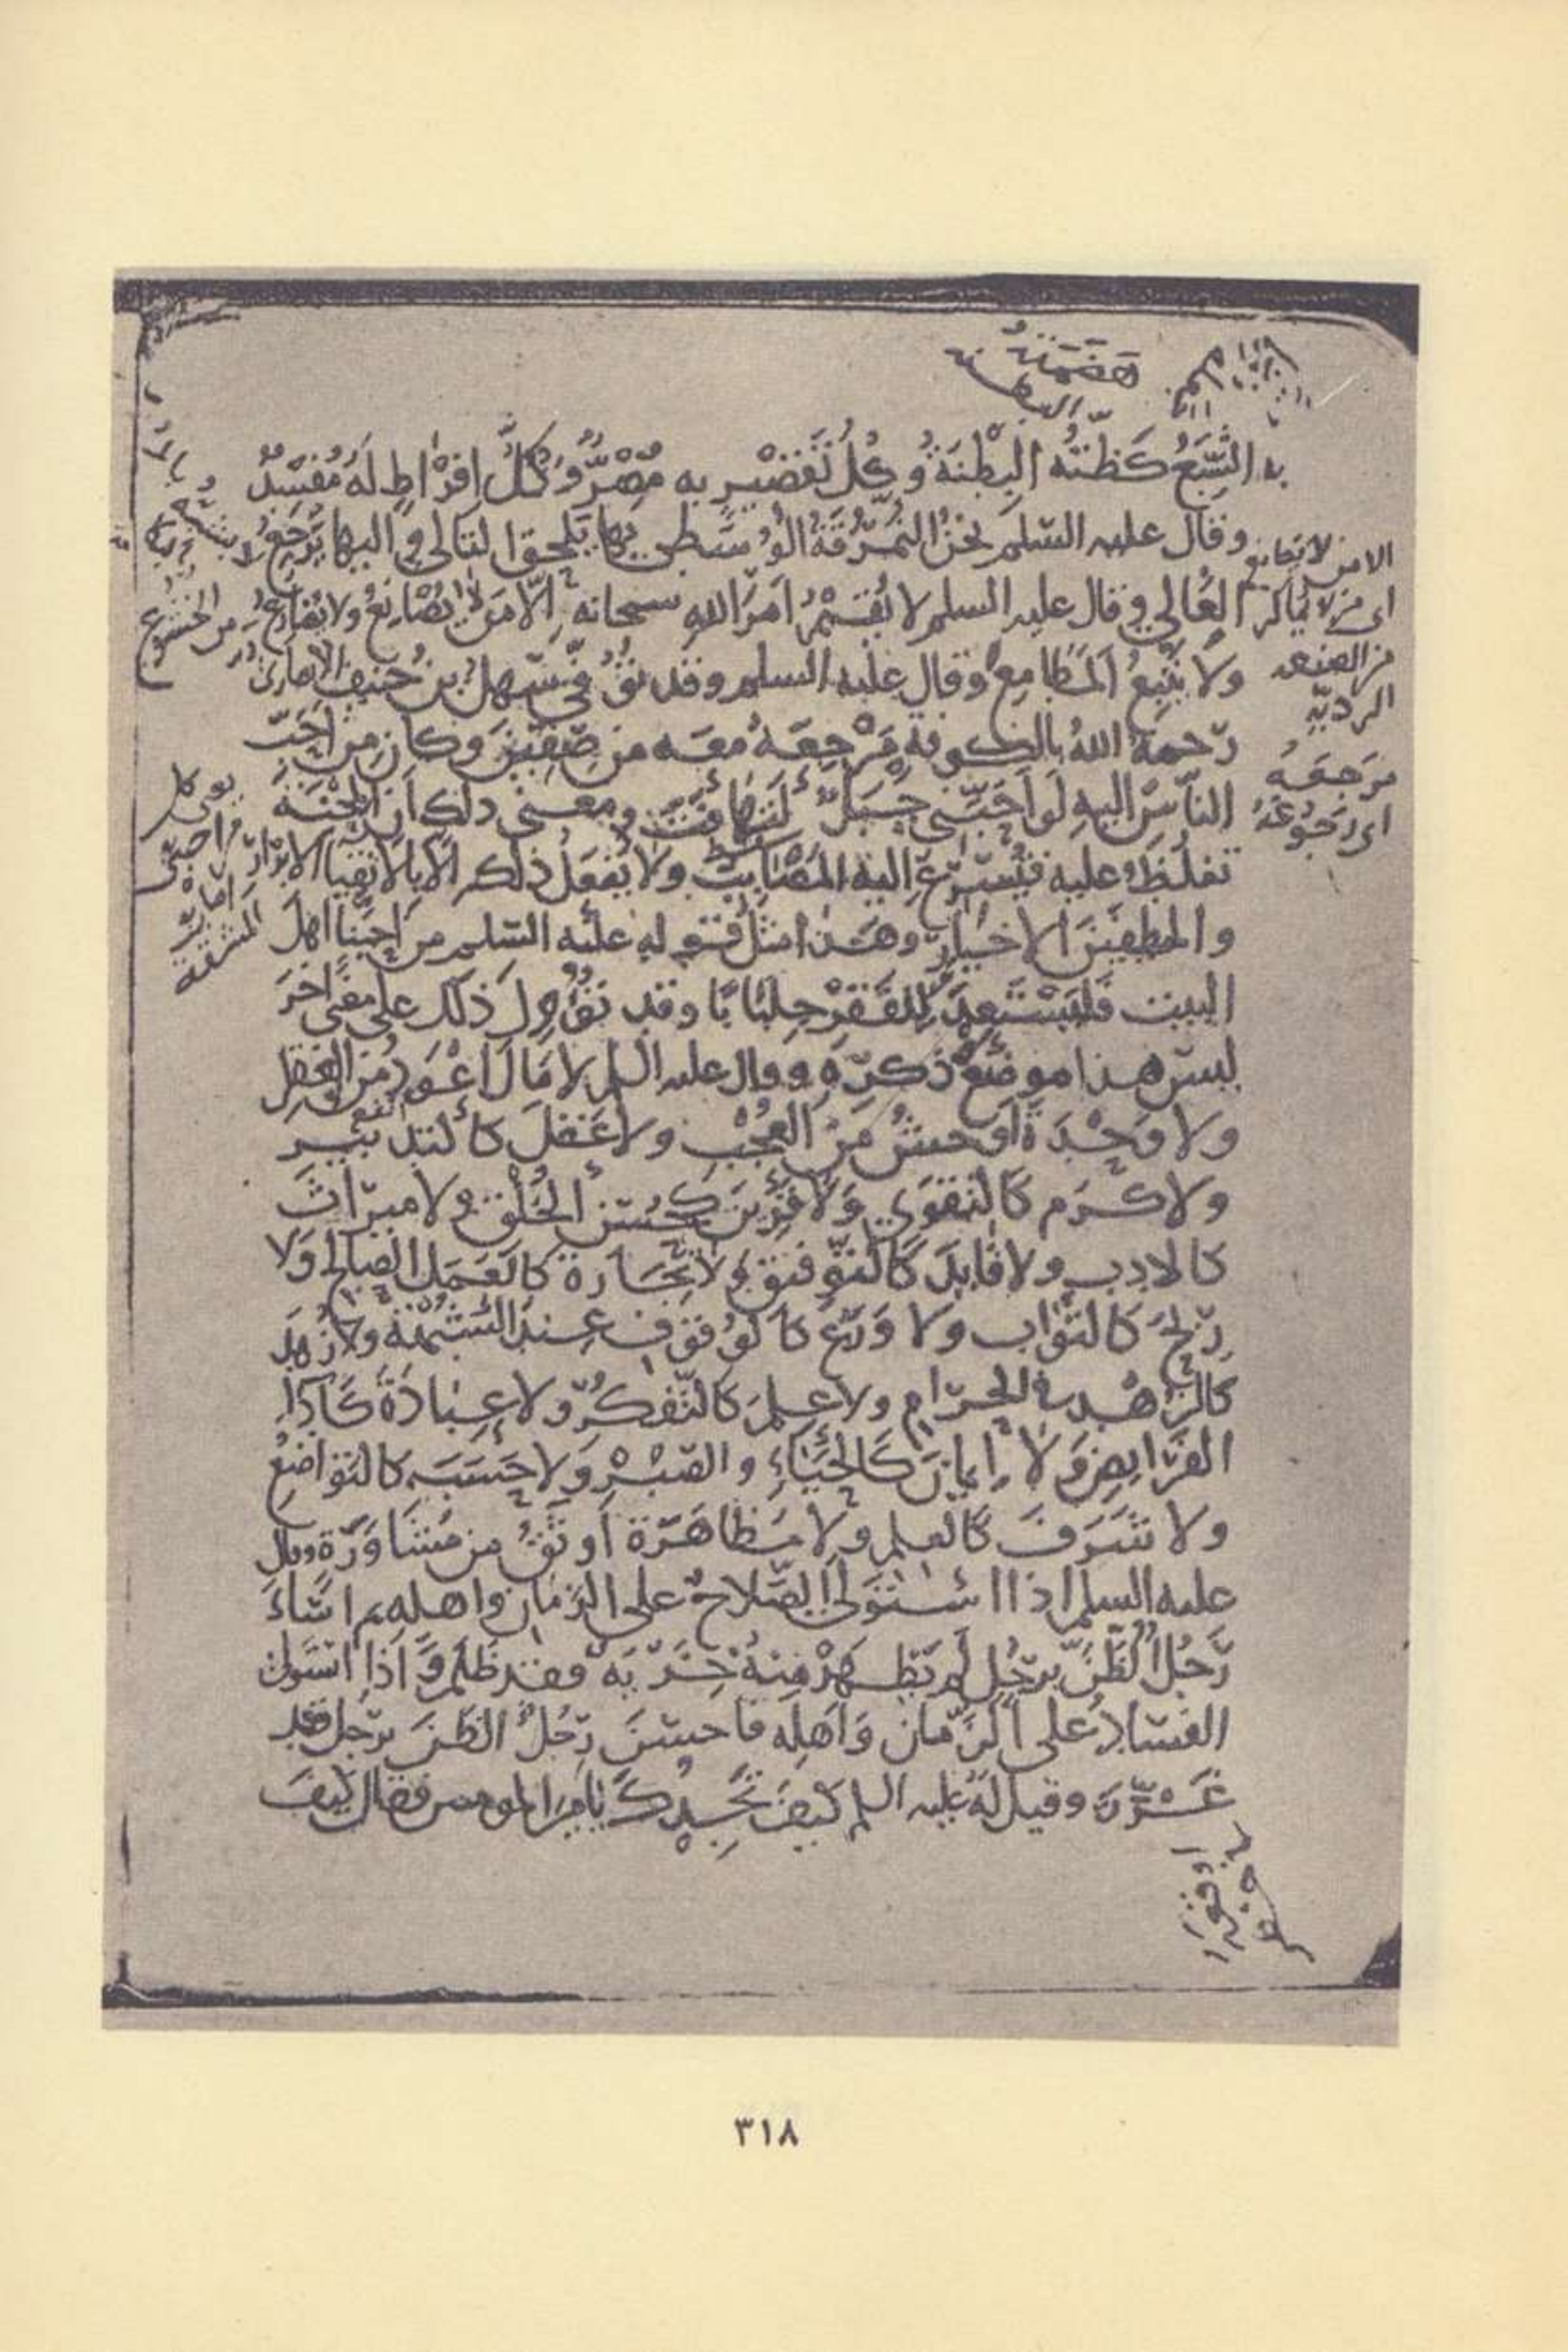 به الشِّبَعُ كَظَّتْهُ البِطْنَةُ وكُلُّ تَقْصِيْرٍ به مُضِرٌّ وَكُلُّ اِفْرَاطٍ لَهُ مُفْسِدٌ
وقال عليه السّلم نحْنُ النُّمْرُقَةُ الوُسْطى بها يَلْحقُ التالي واليها يَرْجِعُ
الغالي وقال عليه السلم لا يُقيْمُ اَمْرَ اللهِ سبحانه اِلّا مَن لا يُصَانِعُ ولا يُضَارِعُ
ولا يَتَّبِعُ المَطامِعَ وقال عليه السلم وقد تُوُفِّيَ سَهلُ بن حُنيفٍ الانصاريُّ
رَحمهُ اللهُ بالكوفة مَرْجِعَهُ معه من صِفِّيْنَ وكان مِن اَحَبّ
النّاس اليهِ لَو اَحَبَّني جَبَلٌ لَتَهَافَتَ ومعنى ذلك اَن المِحْنَةَ
تَغلُظُ عليه فتُسْرِعُ اليه المَصَايبُ ولا يُفْعَلُ ذلك الّا بالاتقِيَا الابْرَارِ
والمصطفَيْنَ الاخيار وهَذا مثلُ قوله عليْه السّلم من اَحبَّنا اهلَ
البيت فليَسْتَعِدَّ لِلفَقْرِ جِلبَابًا وقد تُؤُوّلَ ذلك على معْنًى اخَرَ
ليسَ هذا موضِعَ ذِكْرِه وقال عليه السلم لا مَالَ اَعْوَدُ مِنَ العَقْلِ
ولا وَحْدَةَ اَوحشُ مِنَ العُجْبِ ولا عَقْلَ كالتدبير
ولا كَرَم كالتقوَى وَلا قَرِيْنَ كحُسْنِ الخُلُقِ ولا مِيراثَ
كالادبِ ولا قَايِدَ كَالتَّوْفيْقِ ولا تِجَارَةَ كالعَمَلِ الصَّالِحِ وَلا
رِبْحَ كالثوابِ ولا وَرَعَ كالوُقُوفِ عِندَ الشُّبْهَةِ ولا زُهْدَ
كالزُّهْدِ في الحَرَامِ ولا عِلمَ كالتّفكُّرِ ولا عِبَادَةَ كَاَدَاءِ
الفَرَايضِ وَلا اِيمانَ كَالحَيَاءِ والصَّبْرِ وَلا حَسَبَ كالتَوَاضُعِ
ولا شَرَفَ كالعِلمِ ولا مُظاهَرَةَ اَوثَقُ من مُشاوَرَة وقال
عليه السلم اذا اسْتَوْلَى الصّلاحُ على الزَمَانِ واهلِه ثم اَسَاءَ
رَجُلٌ الظَّنَّ برَجُلٍ لَم تَظْهَرْ مِنهُ خِزْيَةٌ فقد ظَلَمَ وَاِذا اسْتَولى
الفسَادُ على الزَّمان وَاَهلِه فاحسَنَ رَجُلٌ الظنَّ برَجلٍ فقد
غَرَّرَ وقيل لهُ عليه السلم كيفَ تَجِدُكَ يا امِيرَ المومنين فقال كيفَ
هضمته
الامن لا يصانع
من الصنعه
الرديّه
مَرجعَهُ
اي رجُوعَهُ
من الخشوع
٣١٨